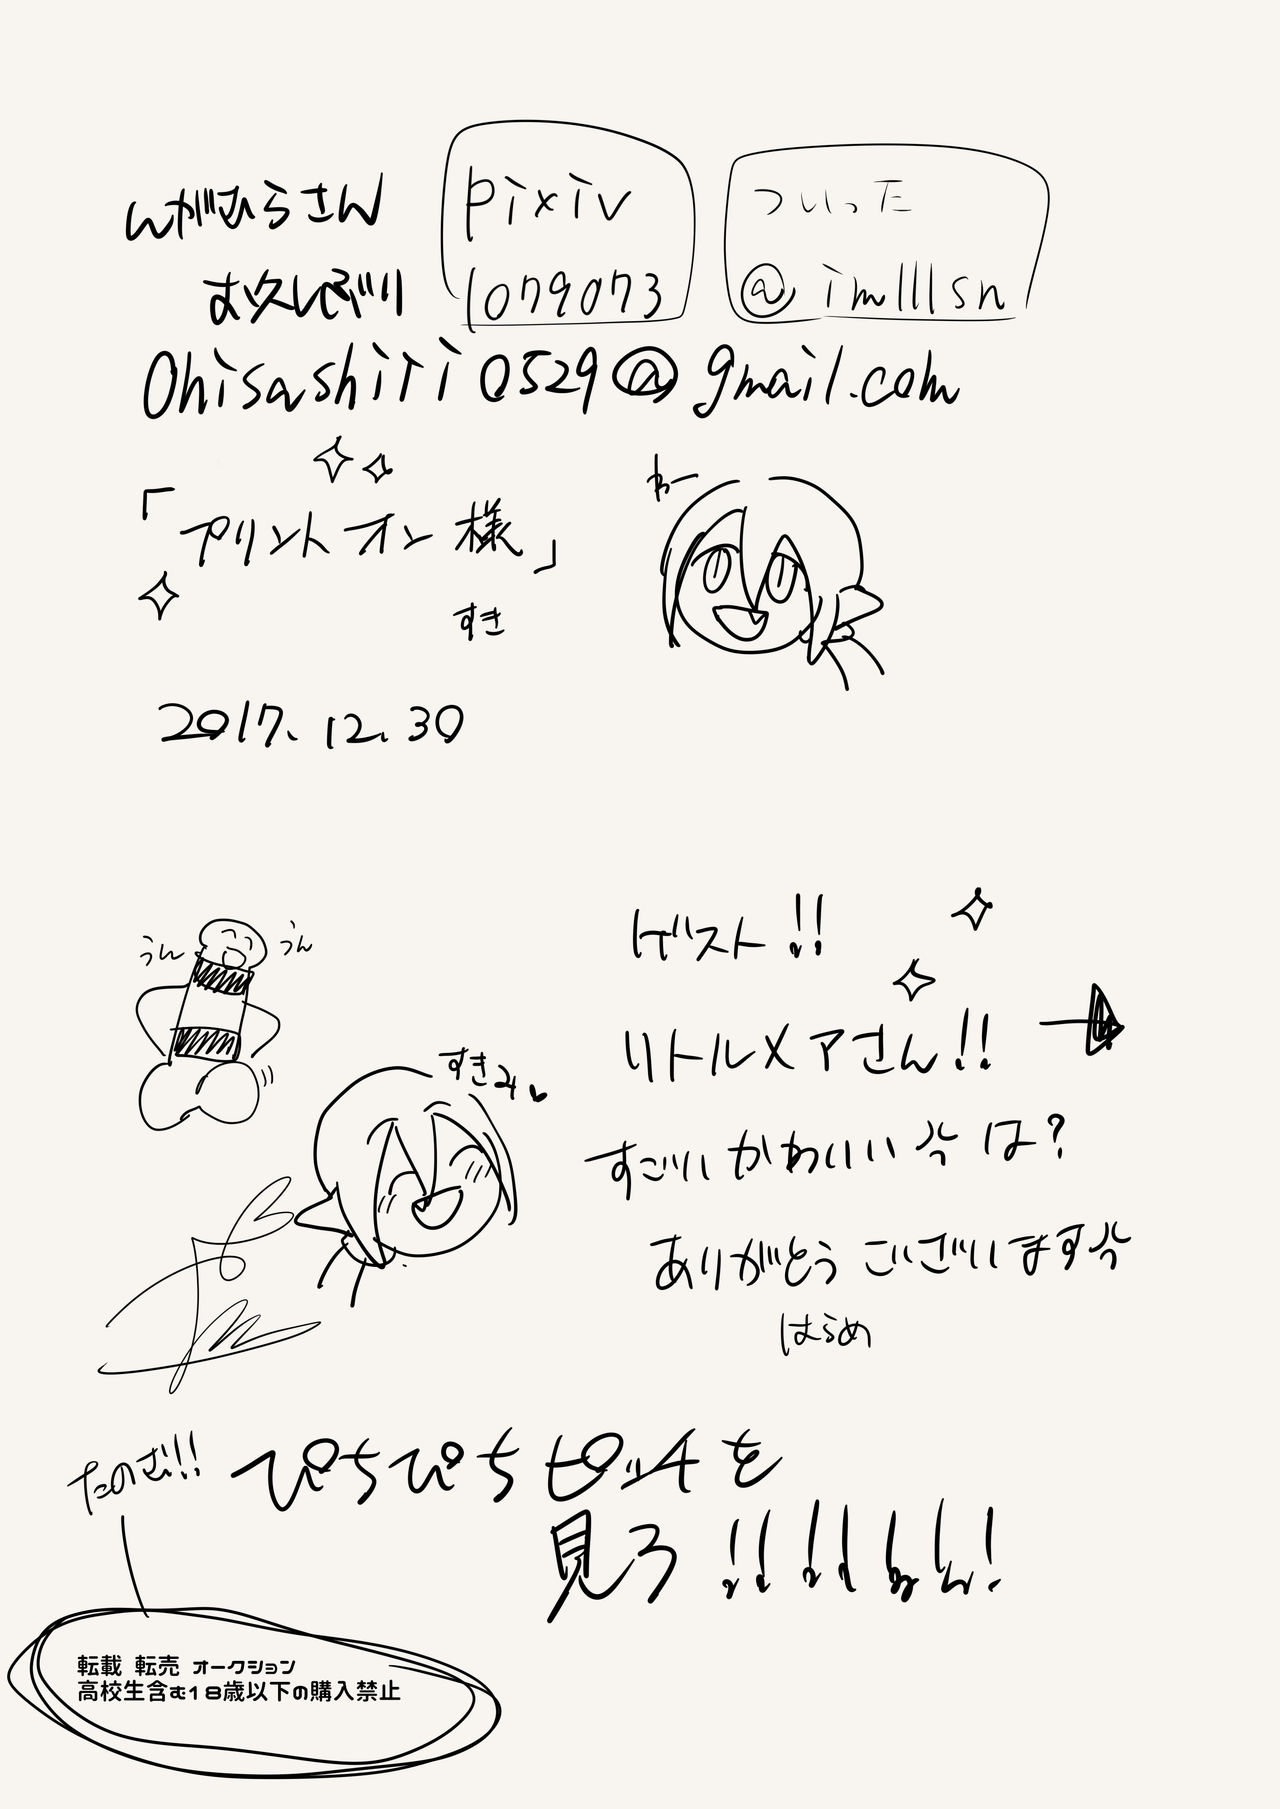 んがひらさん
お久しぶり
pixiv
1079073
ついった
@imlllsn
Ohisashiri0529@gmail.com
「プリントオン様」
すき
わー
2017.12.30
ゲスト!!
うん
うん
リトルメアさん!!
すきみ
すごいかわいい
は?
ありがとうございます
はらめ
たのむ!!
ぴちぴちピッチを
見ろ!!!!!!!
転載 転売 オークション
高校生含む18歳以下の購入禁止